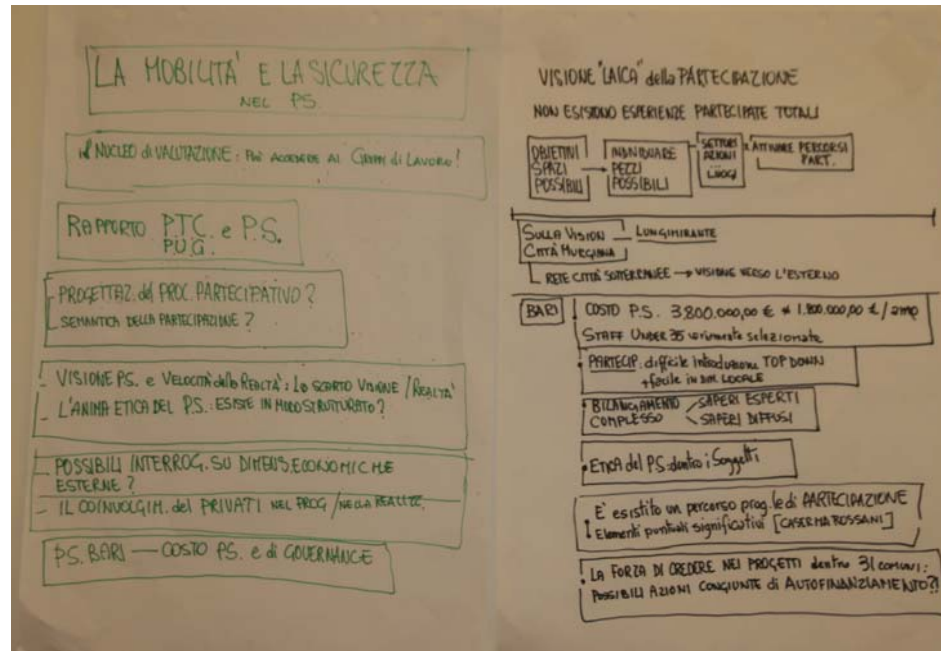 LA MOBILITA' E LA SICUREZZA
NEL P.S.
NUCLEO di VALUTAZIONE: Può ACCEDERE AI GRUPPI di LAVORO!
RAPPORTO PTC. e P.S.
P.U.G.
- PROGETTAZ. del PROC. PARTECIPATIVO?
- SEMANTICA DELLA PARTECIPAZIONE?
- VISIONE P.S. e VELOCITÀ della REALTÀ: Lo SCARTO VISIONE / REALTA'
- L'ANIMA ETICA DEL P.S.: ESISTE IN MODO STRUTTURATO?
- POSSIBILI INTERROG. SU DIMENS. ECONOMICHE
ESTERNE?
- IL COINVOLGIM. dei PRIVATI NEL PROG / NELLA REALTÀ.
P.S. BARI — COSTO P.S. e di GOVERNANCE
VISIONE "LAICA" della PARTECIPAZIONE
NON ESISTONO ESPERIENZE PARTECIPATE TOTALI
OBIETTIVI
SPAZI
POSSIBILI
→
INDIVIDUARE
PEZZI
POSSIBILI
SETTORI
AZIONI
...LUOGI
ATTIVARE PERCORSI
PART.
SULLA VISION — LUNGIMIRANTE
CITTÀ MURGIANA
RETE CITTÀ SOTTERRANEE → VISIONE VERSO L'ESTERNO
BARI
COSTO P.S. 3.800.000,00 € 1.800.000,00 €/anno
STAFF UNDER 35 selezionate
PARTECIP: difficile introduzione TOP DOWN
+ facile in DIM. LOCALE
BILANCIAMENTO
COMPLESSO
SAPERI ESPERTI
SAPERI DIFFUSI
ETICA del PS: dentro i Soggetti
E' esistito un percorso prog.le di PARTECIPAZIONE
Elementi puntuali significativi [CASERMA ROSSANI]
LA FORZA DI CREDERE NEI PROGETTI dentro 31 comuni:
POSSIBILI AZIONI CONGIUNTE di AUTOFINANZIAMENTO?!